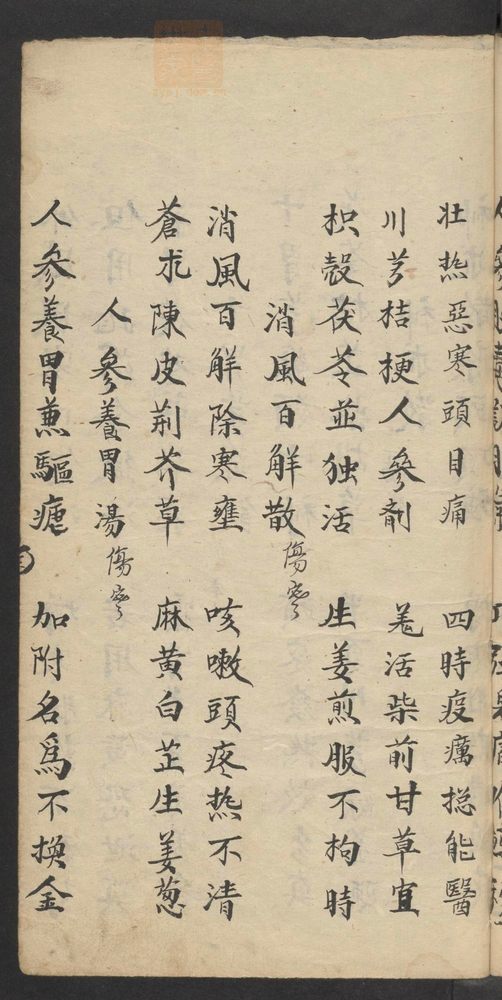 壯热惡寒頭目痛 四時疫癘捴能醫
川芎桔梗人參剤 羗活柴前甘草宜
枳殼茯苓並独活 生姜煎服不拘時
消風百解散 傷寒
消風百解除寒壅 咳嗽頭疼热不清
蒼朮陳皮荊芥草 麻黄白芷生姜葱
人參養胃湯 傷寒
人參養胃蕙驅瘧 加附名爲不換金